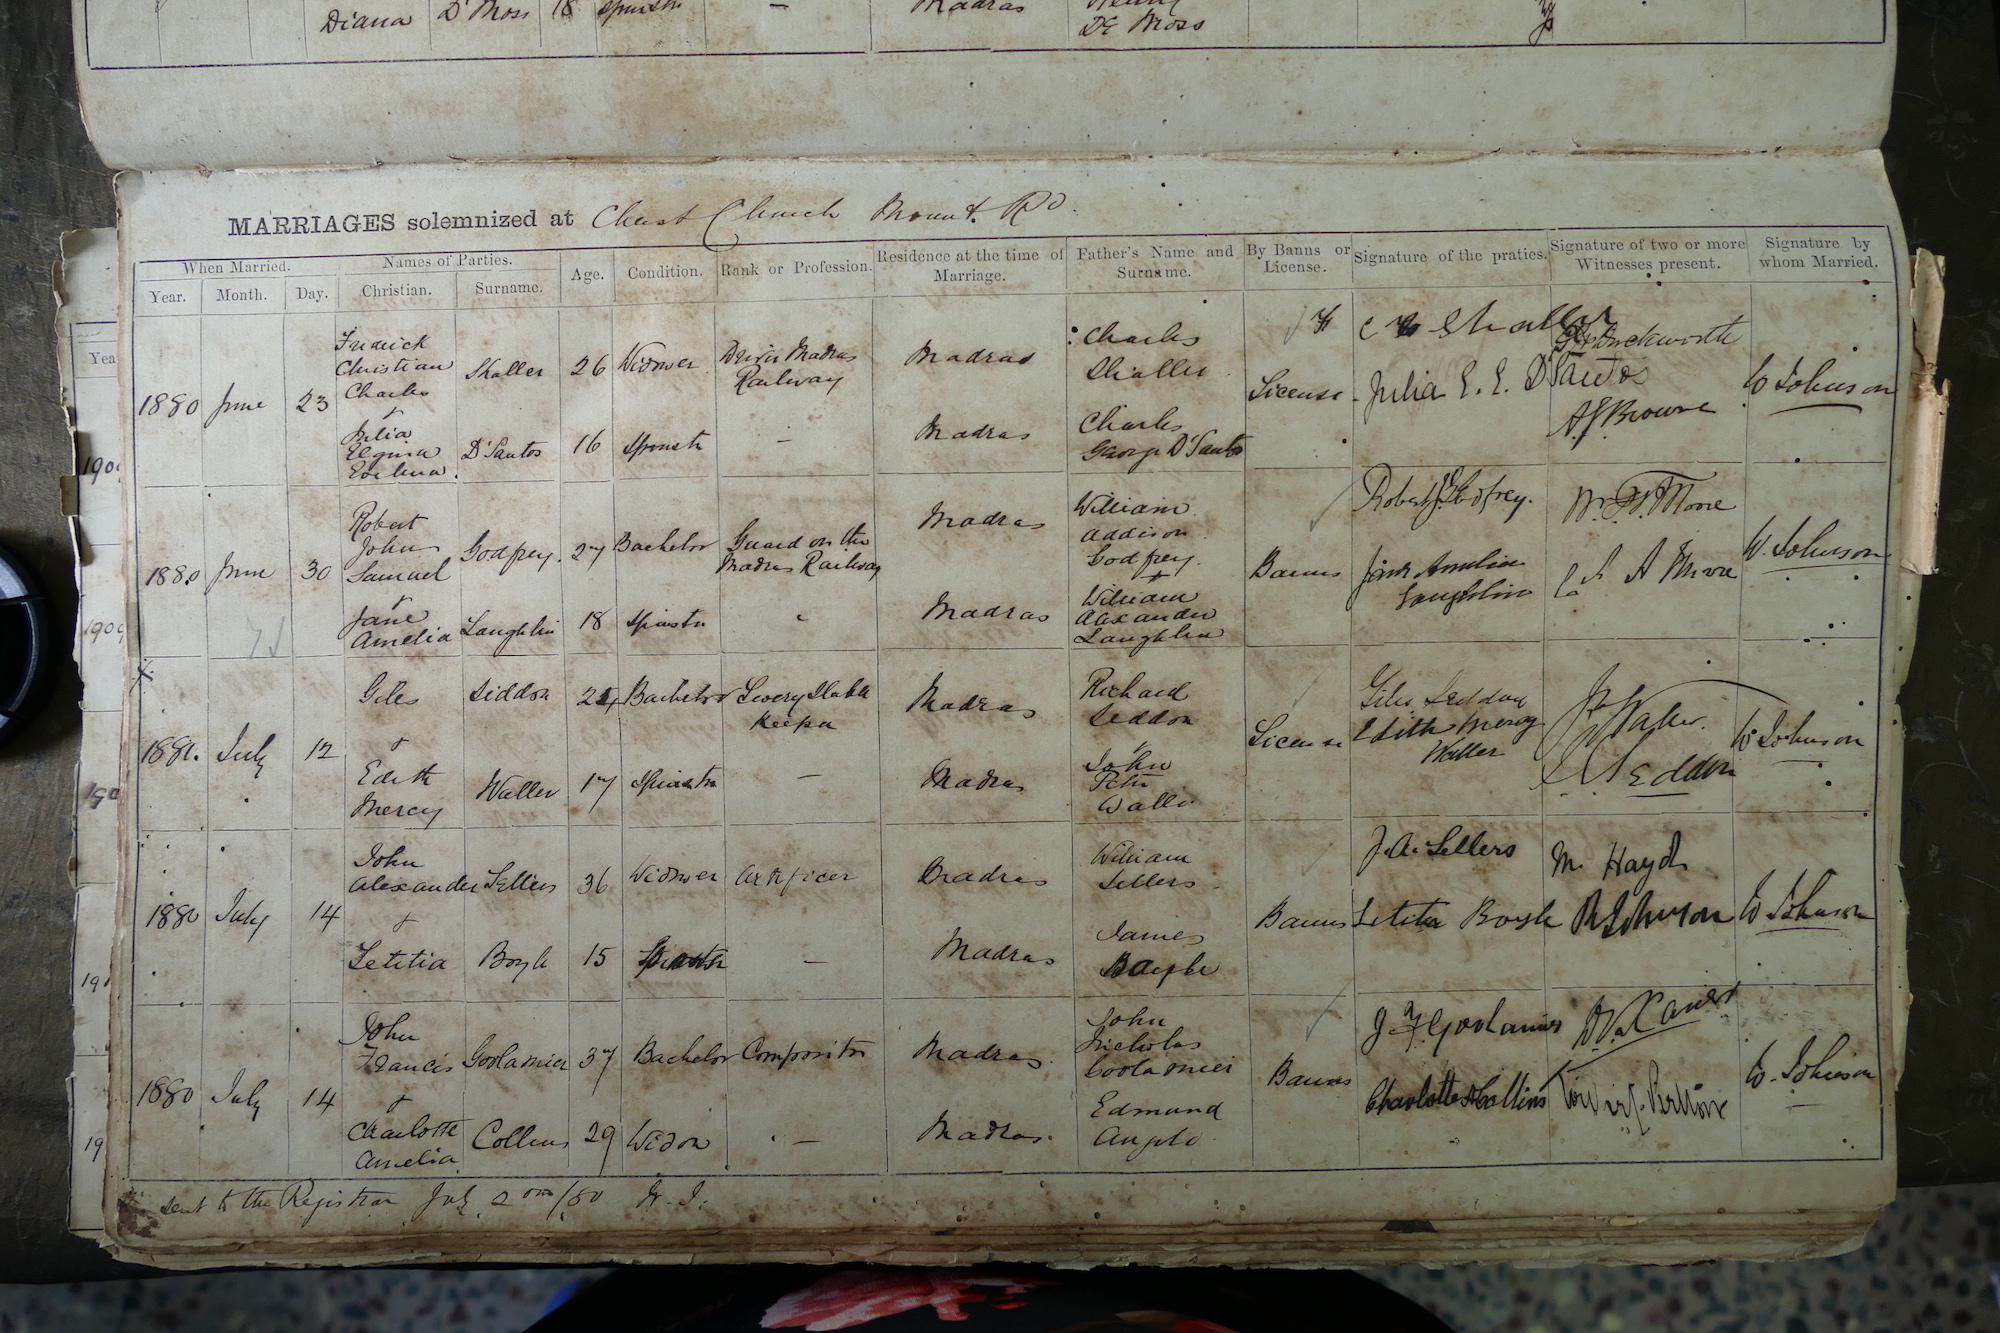 Diana D'Moss 18 Spinstr — Madras
De Moss
MARRIAGES solemnized at Christ Church Mount Rd.
When Married. Names of Parties. Age. Condition. Rank or Profession. Residence at the time of Marriage. Father's Name and Surname. By Banns or License. Signature of the praties. Signature of two or more Witnesses present. Signature by whom Married.
Year. Month. Day. Christian. Surname.
1880 June 23
Fredrick
Christian
Charles
Shaller 26 Widower Driver Madras
Railway
Madras
Charles
Shaller
License
&
Julia
Elguia
Evelina.
D'Santos 16 Spinstr — Madras
Charles
George D'Santos
Julia E. E. D'Santos
A J Browne
W Johnson
1880 June 30
Robert
John
Samuel
Godfrey. 27 Bachelor Guard on the
Madras Railway
Madras
William
Addison
Godfrey.
Banns
&
Jane
Amelia
Laughlin 18 Spinstr Madras
&
William
Alexander
Laughlin
Robert J. S. Godfrey.
Jane Amelia
Laughlin
W. Johnson
1880. July 12
Giles Seddon Bachelor Livery Stable
Keeper
Madras
Richard
Seddon
License
&
Edith
Mercy
Waller 17 Spinstr — Madras
&
John
Peter
Waller
Giles Seddon
Edith Mercy
Waller
W Johnson
1880 July 14
John
Alexander Sellers 36 Widower Artificer Madras
William
Sellers
Banns
&
Letitia Boyle 15 Spinstr — Madras
James
Bayle
J. A. Sellers
Letitia Boyle
R Johnson
W Johnson
1880 July 14
John
Francis Goolamier 37 Bachelor Compositor Madras.
John
Nicholas
Goolamier
Banns
&
Charlotte
Amelia
Collins 29 Widow — Madras.
Edmund
Angelo
J. F. Goolamier
Charlotte A Collins
W. Johnson
Sent to the Registrar July 2nd/80 W. J.